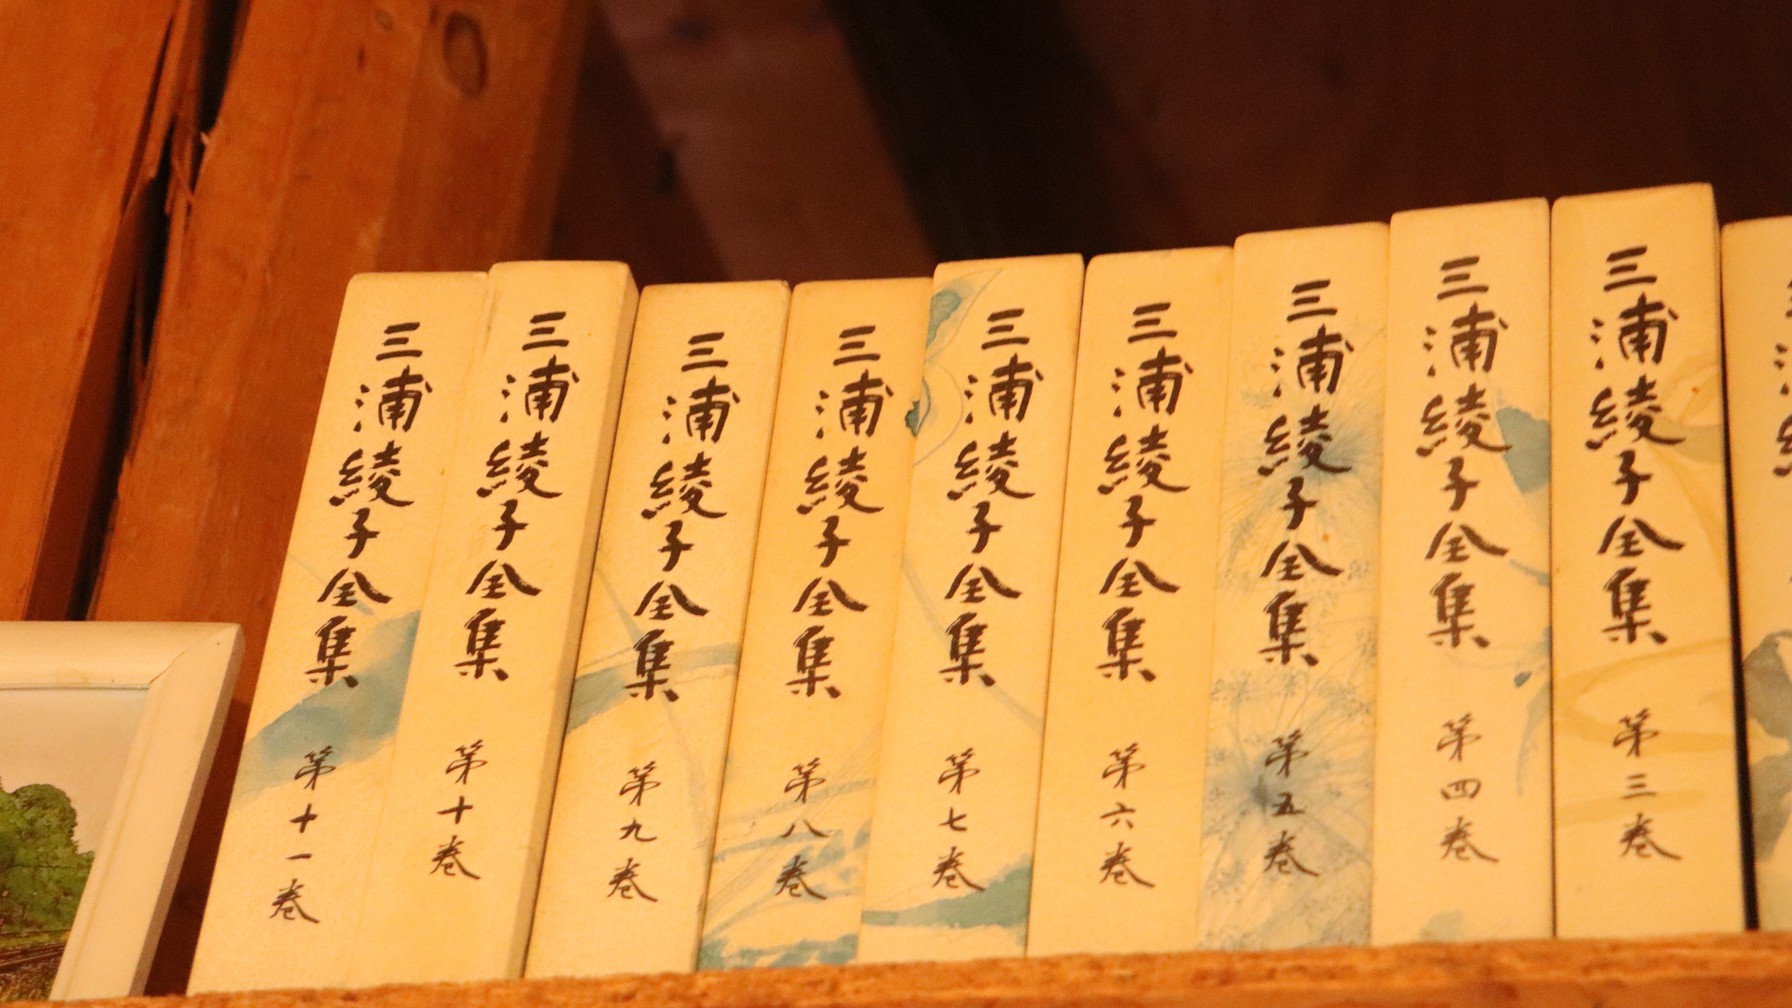 三浦綾子全集 第十一巻
三浦綾子全集 第十巻
三浦綾子全集 第九巻
三浦綾子全集 第八巻
三浦綾子全集 第七巻
三浦綾子全集 第六巻
三浦綾子全集 第五巻
三浦綾子全集 第四巻
三浦綾子全集 第三巻